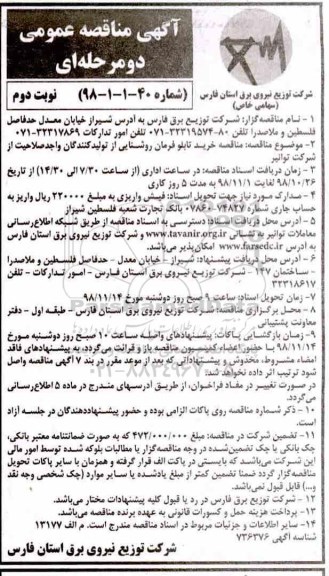 آگهی مناقصه عمومی
دو مرحله‌ای
(شماره ۴۰-۱-۱-۹۸) نوبت دوم
شرکت توزیع نیروی برق استان فارس
(سهامی خاص)
۱ - نام مناقصه‌گزار: شرکت توزیع برق فارس به آدرس شیراز خیابان معدل حدفاصل
فلسطین و ملاصدرا تلفن ۸۰-۳۲۳۱۹۵۷۴-۰۷۱ تلفن امور تدارکات ۳۲۳۱۷۸۶۹-۰۷۱
۲- موضوع مناقصه: مناقصه خرید تابلو فرمان روشنایی از تولیدکنندگان واجدصلاحیت از
شرکت توانیر
۳- زمان دریافت اسناد مناقصه: در ساعت اداری (از ساعت ۷/۳۰ الی ۱۴/۳۰) از تاریخ
۹۸/۱۰/۲۶ لغایت ۹۸/۱۱/۱ به مدت ۵ روز کاری
۴- مدارک مورد نیاز جهت تحویل اسناد: فیش واریزی به مبلغ ۲۲۰۰۰۰ ریال واریز به
حساب جاری شماره ۷۴۸۲۷-۰۷۸۶۰ بانک تجارت شعبه فلسطین شیراز
۵- آدرس محل دریافت اسناد: دسترسی به اسناد مناقصه از طریق شبکه اطلاع‌رسانی
معاملات توانیر به نشانی www.tavanir.org.ir و شرکت توزیع نیروی برق استان فارس
به آدرس www.farsedc.ir امکان‌پذیر می‌باشد.
۶ - آدرس محل دریافت پیشنهاد: شیراز - خیابان معدل - حدفاصل فلسطین و ملاصدرا
- ساختمان ۱۴۷ - شرکت توزیع نیروی برق استان فارس - امور تدارکات - تلفن
۳۲۳۱۸۶۱۷
۷- زمان تحویل اسناد: ساعت ۹ صبح روز دوشنبه مورخ ۹۸/۱۱/۱۴
۸ - محل برگزاری مناقصه: شرکت توزیع نیروی برق استان فارس - طبقه اول - دفتر
معاونت پشتیبانی
۹- زمان بازگشایی پاکات: پیشنهادهای واصله ساعت ۱۰ صبح روز دوشنبه مورخ
۹۸/۱۱/۱۴ با حضور اعضاء کمیسیون مناقصه باز و قرائت می‌گردد. به پیشنهادهای فاقد
امضاء مشروط، مخدوش و پیشنهاداتی که بعد از موعد مقرر در بند ۷ آگهی مناقصه واصل
شود ترتیب اثر داده نخواهد شد.
در صورت تغییر در مفاد فراخوان، از طریق آدرسهای مندرج در ماده ۵ اطلاع‌رسانی
می‌گردد.
۱۰ - ذکر شماره مناقصه روی پاکات الزامی بوده و حضور پیشنهاددهندگان در جلسه آزاد
است.
۱۱- تضمین شرکت در مناقصه: مبلغ ۴۷۳/۰۰۰/۰۰۰ که به صورت ضمانتنامه معتبر بانکی،
چک بانکی یا چک تضمین‌شده در وجه مناقصه‌گزار یا مطالبات بلوکه شده توسط امور مالی
این شرکت می‌باشد که بایستی در پاکت الف قرار گرفته و همزمان با سایر پاکات تحویل
مناقصه‌گزار گردد ضمنا تضمین کمتر از مبلغ یادشده یا سایر موارد (چک شخصی وجه نقد
و...) قابل قبول نمی‌باشد.
۱۲- شرکت توزیع برق فارس در رد یا قبول کلیه پیشنهادات مختار می‌باشد.
۱۳- پرداخت هزینه حمل و کسورات قانونی به عهده برنده مناقصه می‌باشد.
۱۴- سایر اطلاعات و جزئیات مربوط در اسناد مناقصه مندرج است. م الف ۱۳۱۷۷
شناسه آگهی ۷۳۶۳۷۶
شرکت توزیع نیروی برق استان فارس